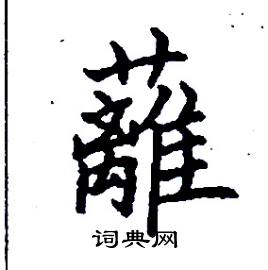 蘺
词典网